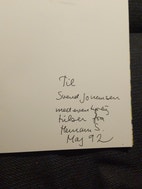 Til
Svend Johansen
med venlig
hilsen fra
Maj 92